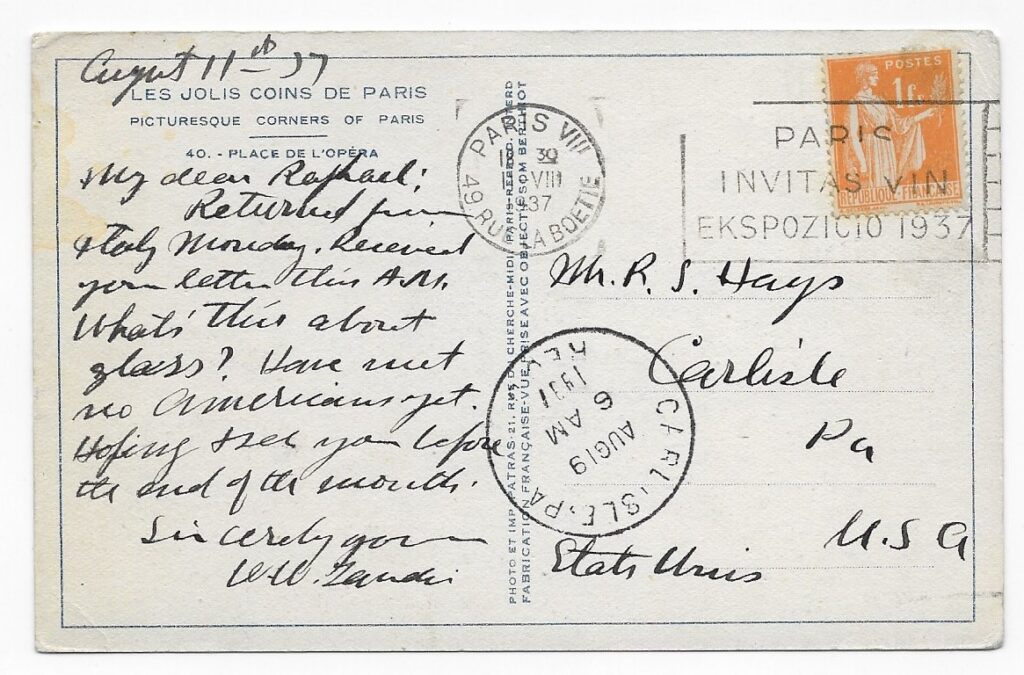 August 11th 37
LES JOLIS COINS DE PARIS
PICTURESQUE CORNERS OF PARIS
40. - PLACE DE L'OPÉRA
My dear Raphael;
Returned from
Italy Monday. Received
your letter this A.M.
What's this about
glass? Have met
no Americans yet.
Hoping to see you before
the end of the month.
Sincerely yours
W.W.
PHOTO ET IMP. PATRAS, 21, RUE DU CHERCHE-MIDI, PARIS
FABRICATION FRANÇAISE-VUE PRISE AVEC OBJECTIF SOM BERTHIOT
PARIS VIII
30
VIII
1937
49 RUE LA BOETIE
POSTES
1fr
REPUBLIQUE FRANÇAISE
PARIS
INVITAS VIN
EKSPOZICIO 1937
Mr. R. S. Hays
Carlisle
Pa
U.S.A
Etats Unis
CARLISLE, PA
AUG 19
6 AM
1937
REC